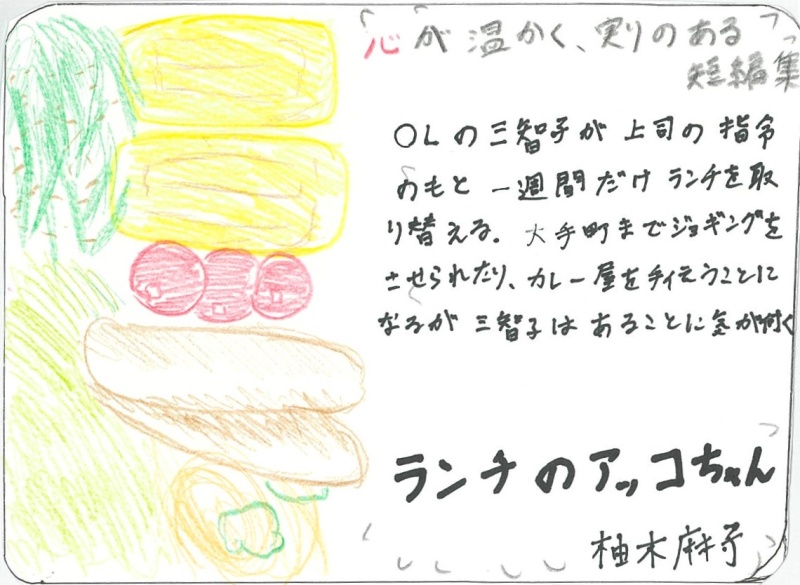 心が温かく、実りのある
短編集
OLの三智子が上司の指令
のもと一週間だけランチを取
り替える。大手町までジョギングを
させられたり、カレー屋を手伝うことに
なるが三智子はあることに気が付く
ランチのアッコちゃん
柚木麻子